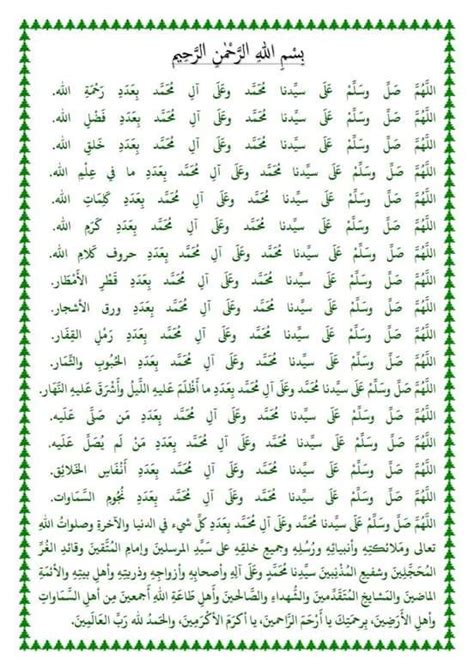 بِسْمِ اللهِ الرَّحْمٰنِ الرَّحِيمِ
اللَّهُمَّ صَلِّ وسَلِّمْ عَلَى سيِّدنا مُحَمَّد وعَلَى آلِ مُحَمَّد بِعَدَدِ رَحْمَةِ الله.
اللَّهُمَّ صَلِّ وسَلِّمْ عَلَى سيِّدنا مُحَمَّد وعَلَى آلِ مُحَمَّد بِعَدَدِ فَضْلِ الله.
اللَّهُمَّ صَلِّ وسَلِّمْ عَلَى سيِّدنا مُحَمَّد وعَلَى آلِ مُحَمَّد بِعَدَدِ خَلقِ الله.
اللَّهُمَّ صَلِّ وسَلِّمْ عَلَى سيِّدنا مُحَمَّد وعَلَى آلِ مُحَمَّد بِعَدَدِ ما في عِلْمِ الله.
اللَّهُمَّ صَلِّ وسَلِّمْ عَلَى سيِّدنا مُحَمَّد وعَلَى آلِ مُحَمَّد بِعَدَدِ كَلِمَاتِ الله.
اللَّهُمَّ صَلِّ وسَلِّمْ عَلَى سيِّدنا مُحَمَّد وعَلَى آلِ مُحَمَّد بِعَدَدِ كَرَمِ الله.
اللَّهُمَّ صَلِّ وسَلِّمْ عَلَى سيِّدنا مُحَمَّد وعَلَى آلِ مُحَمَّد بِعَدَدِ حروف كَلامِ الله.
اللَّهُمَّ صَلِّ وسَلِّمْ عَلَى سيِّدنا مُحَمَّد وعَلَى آلِ مُحَمَّد بِعَدَدِ قَطْرِ الأَمْطَار.
اللَّهُمَّ صَلِّ وسَلِّمْ عَلَى سيِّدنا مُحَمَّد وعَلَى آلِ مُحَمَّد بِعَدَدِ ورق الأشجار.
اللَّهُمَّ صَلِّ وسَلِّمْ عَلَى سيِّدنا مُحَمَّد وعَلَى آلِ مُحَمَّد بِعَدَدِ رَمْلِ القِفَار.
اللَّهُمَّ صَلِّ وسَلِّمْ عَلَى سيِّدنا مُحَمَّد وعَلَى آلِ مُحَمَّد بِعَدَدِ الحُبُوبِ والثَّمَار.
اللَّهُمَّ صَلِّ وسَلِّمْ عَلَى سيِّدنا مُحَمَّد وعَلَى آلِ مُحَمَّد بِعَدَدِ ما أَظْلَمَ عَليهِ اللَّيلُ وأَشْرَقَ عَليهِ النَّهار.
اللَّهُمَّ صَلِّ وسَلِّمْ عَلَى سيِّدنا مُحَمَّد وعَلَى آلِ مُحَمَّد بِعَدَدِ مَن صَلَّى عَليه.
اللَّهُمَّ صَلِّ وسَلِّمْ عَلَى سيِّدنا مُحَمَّد وعَلَى آلِ مُحَمَّد بِعَدَدِ مَنْ لَم يُصَلِّ عَليه.
اللَّهُمَّ صَلِّ وسَلِّمْ عَلَى سيِّدنا مُحَمَّد وعَلَى آلِ مُحَمَّد بِعَدَدِ أَنْفَاسِ الخَلائِق.
اللَّهُمَّ صَلِّ وسَلِّمْ عَلَى سيِّدنا مُحَمَّد وعَلَى آلِ مُحَمَّد بِعَدَدِ نُجُومِ السَّمَاوات.
اللَّهُمَّ صَلِّ وسَلِّمْ عَلَى سيِّدنا مُحَمَّد وعَلَى آلِ مُحَمَّد بِعَدَدِ كلِّ شيء في الدنيا والآخرةِ وصلواتُ اللهِ
تعالى ومَلائكتِهِ وأنبيائِهِ ورُسُلِهِ وجميع خلقِهِ على سَيِّدِ المرسلينَ وإمامِ المُتَّقينَ وقائدِ الغُرِّ
المُحَجَّلينَ وشفيعِ المُذْنِبينَ سيِّدنا مُحَمَّدٍ وعَلَى آلِهِ وأصحابِهِ وأزواجِهِ وذريتِهِ وأهلِ بيتِهِ والأئمةِ
الماضينَ والمَشايخِ المُتَقدِّمينَ والشُّهداءِ والصَّالحينَ وأَهلِ طَاعَةِ اللهِ أَجمعينَ مِن أهلِ السَّمَاواتِ
وأهلِ الأَرَضِينَ، بِرحمَتِكَ يا أَرْحَمَ الرَّاحمينَ، يا أكرَمَ الأَكْرَمِينَ، والحَمدُ لله رَبِّ العالَمِينَ.